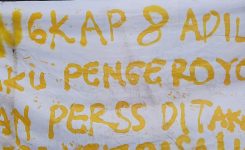 NGKAP 8 ADIL
AKU PENGEROYO
AN PERSS DITAK